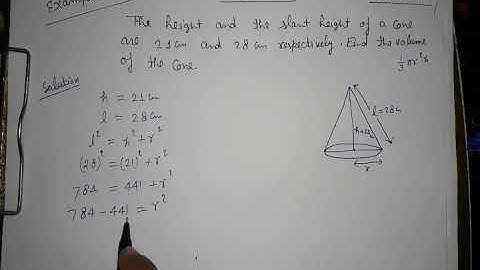 Example
The height and the slant height of a Cone
are 21cm and 28cm respectively. Find the volume
of the Cone.
1/3 πr²h
Solution
h = 21cm
l = 28cm
l² = h² + r²
(28)² = (21)² + r²
784 = 441 + r²
784 - 441 = r²
l = 28
r